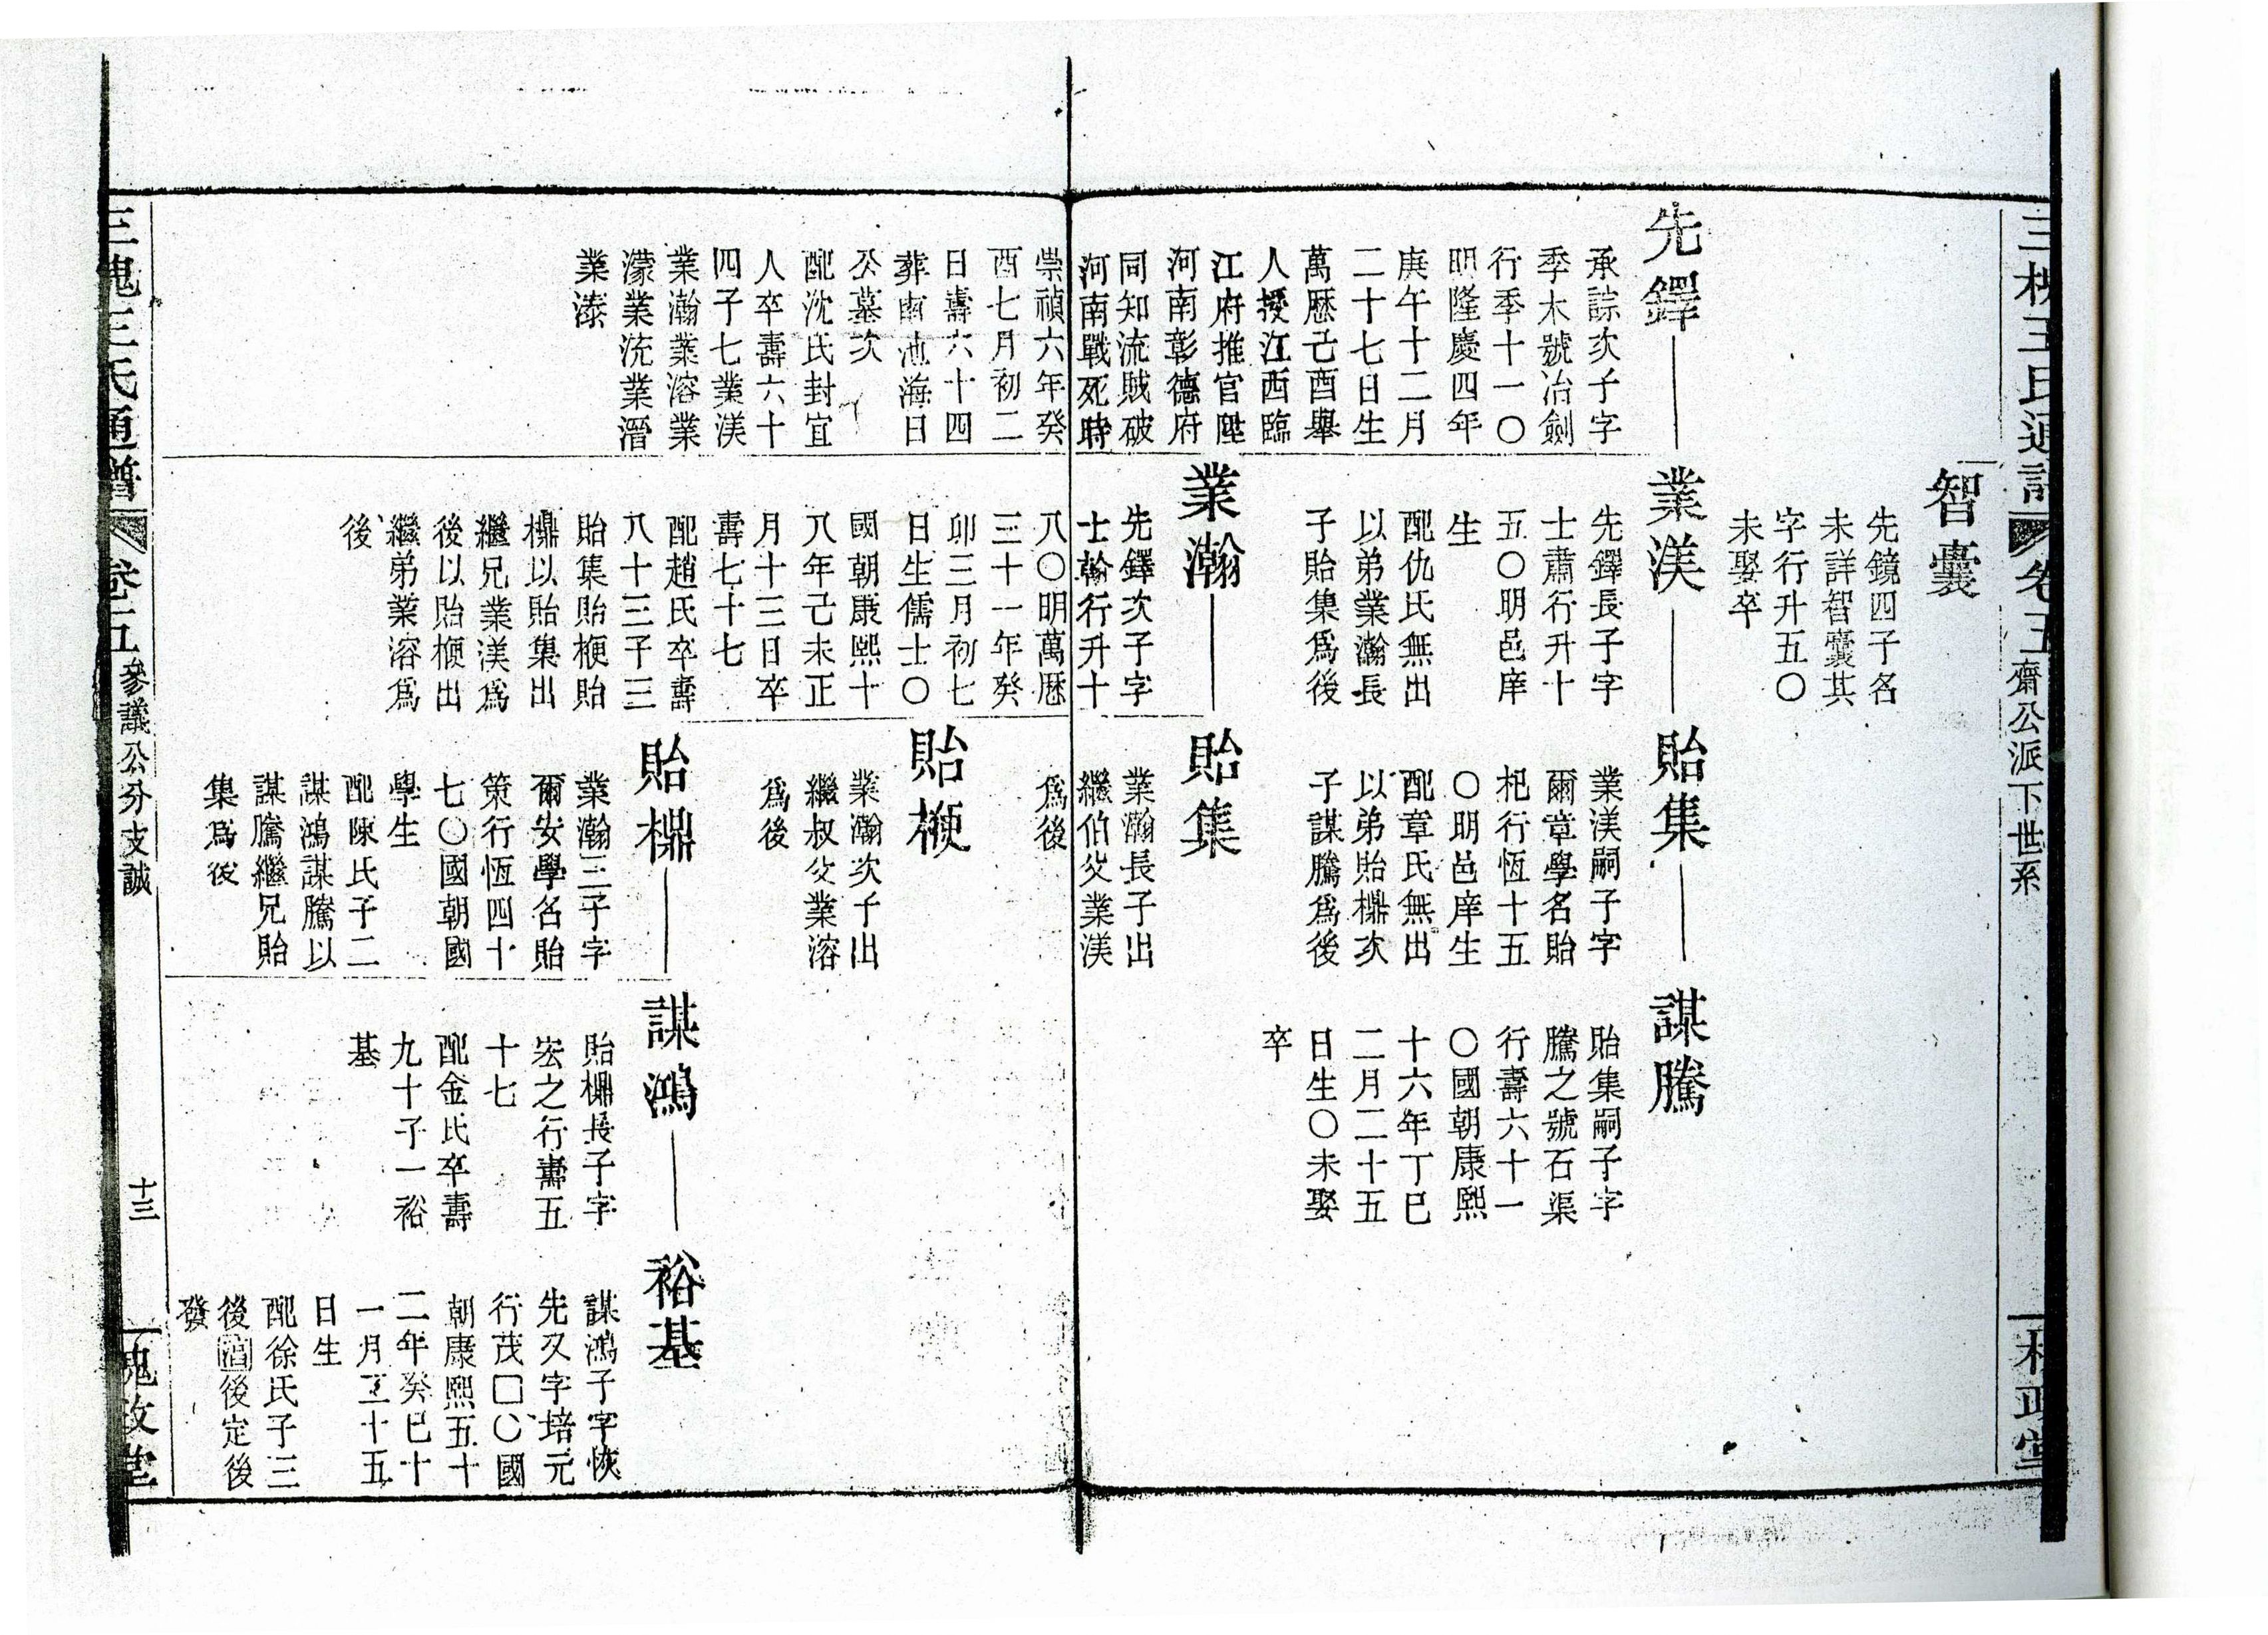 三槐王氏通譜
卷五
齋公派下世系
槐政堂
智囊
先鏡四子名
未詳智囊其
字行升五〇
未娶卒
先鐸
承誴次子字
季木號冶劍
行季十一〇
明隆慶四年
庚午十二月
二十七日生
萬歷己酉舉
人授江西臨
江府推官陞
河南彰德府
同知流賊破
河南戰死時
崇禎六年癸
酉七月初二
日壽六十四
葬南池海日
公墓次
配沈氏封宜
人卒壽六十
四子七業渼
業瀚業溶業
濛業沇業溍
業漆
業渼
先鐸長子字
士肅行升十
五〇明邑庠
生
配仇氏無出
以弟業瀚長
子貽集爲後
貽集
業渼嗣子字
爾章學名貽
杷行恆十五
〇明邑庠生
配章氏無出
以弟貽櫐次
子謀騰爲後
謀騰
貽集嗣子字
騰之號石渠
行壽六十一
〇國朝康熙
十六年丁巳
二月二十五
日生〇未娶
卒
業瀚
先鐸次子字
士翰行升十
八〇明萬歷
三十一年癸
卯三月初七
日生儒士〇
國朝康熙十
八年己未正
月十三日卒
壽七十七
配趙氏卒壽
八十三子三
貽集貽楩貽
以貽集出
繼兄業渼爲
後以貽楩出
繼弟業溶爲
後
貽集
業瀚長子出
繼伯父業渼
爲後
貽楩
業瀚次子出
繼叔父業溶
爲後
貽
業瀚三子字
爾安學名貽
策行恆四十
七〇國朝國
學生
配陳氏子二
謀鴻謀騰以
謀騰繼兄貽
集爲後
謀鴻
貽長子字
宏之行壽五
十七
配金氏卒壽
九十子一裕
基
裕基
謀鴻子字恢
先又字培元
行茂□〇國
朝康熙五十
二年癸巳十
一月二十五
日生
配徐氏子三
後後定後
發
三槐王氏通譜
卷五
參議公分支誠
十三
槐政堂